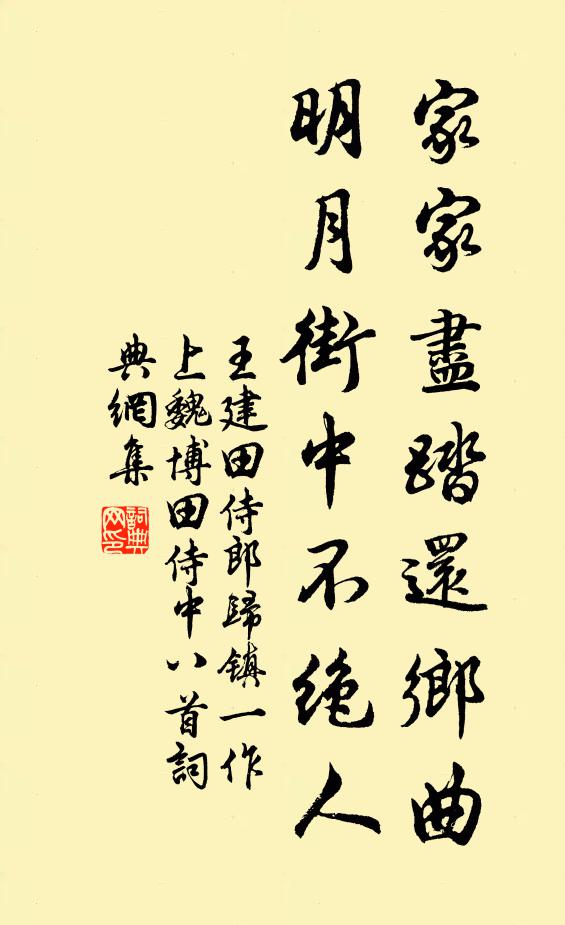 家家盡踏還鄉曲
明月街中不绝人
王建田侍郎歸镇一作
上魏博田侍中八首詞
典網集
詞典
网印